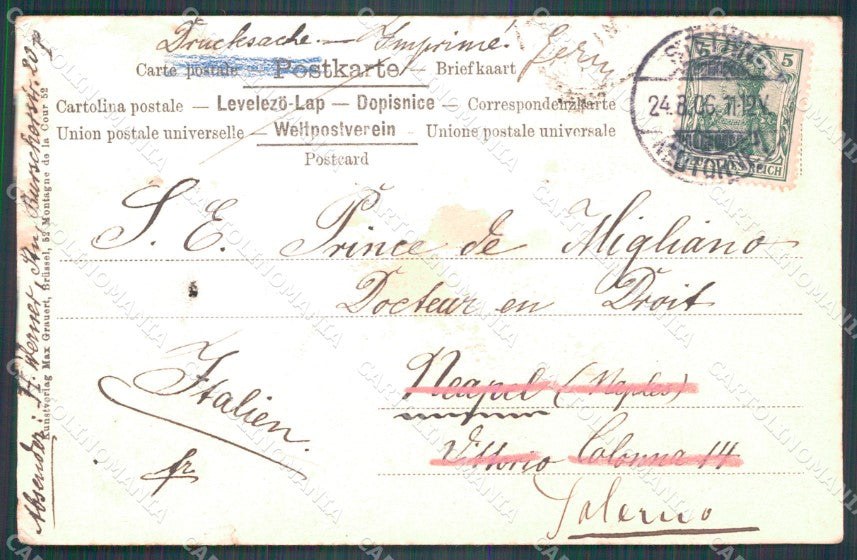 Drucksache — Imprimé!
Carte postale — Postkarte — Briefkaart
Cartolina postale — Levelezö-Lap — Dopisnice — Correspondenzkarte
Union postale universelle — Weltpostverein — Unione postale universale
Postcard
5
24.8.06. 11-12V.
REICH
S. E. Prince de Migliano
Docteur en Droit
Neapel (Naples)
Vittorio Colonna 14
Salerno
Italien.
fr.
Absender: H. Werner,
Kunstverlag Max Grauert, Brüssel, 52 Montagne de la Cour 52
CARTOLINOMANIA